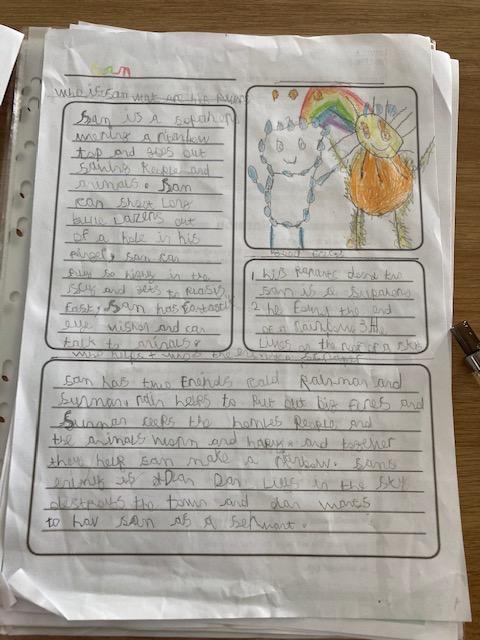 San
who is San wat are his
San is a supahero
wering a rainbow
top and goes out
saving People and
animals. San
can shoot Long
blue Lazers out
of a hole in his
finger, San can
fly so highy in the
sky and gets to places
fast, San has fantastic
eye vishon and can
talk to animals.
1. his Parants dont no
San is a supahero
2 he found the end
of a rainbow 3 He
Lives on the roof of a sky
San has two friends cald Rainman and
Sunman. rain helps to Put out big fires and
Sunman ceeps the homles People and
the animals worm and happy. and together
they help San make a rainbow. Sans
enimy is Dan Dan Lives in the sky
destroyts the town and dan wants
to hav San as a servant.